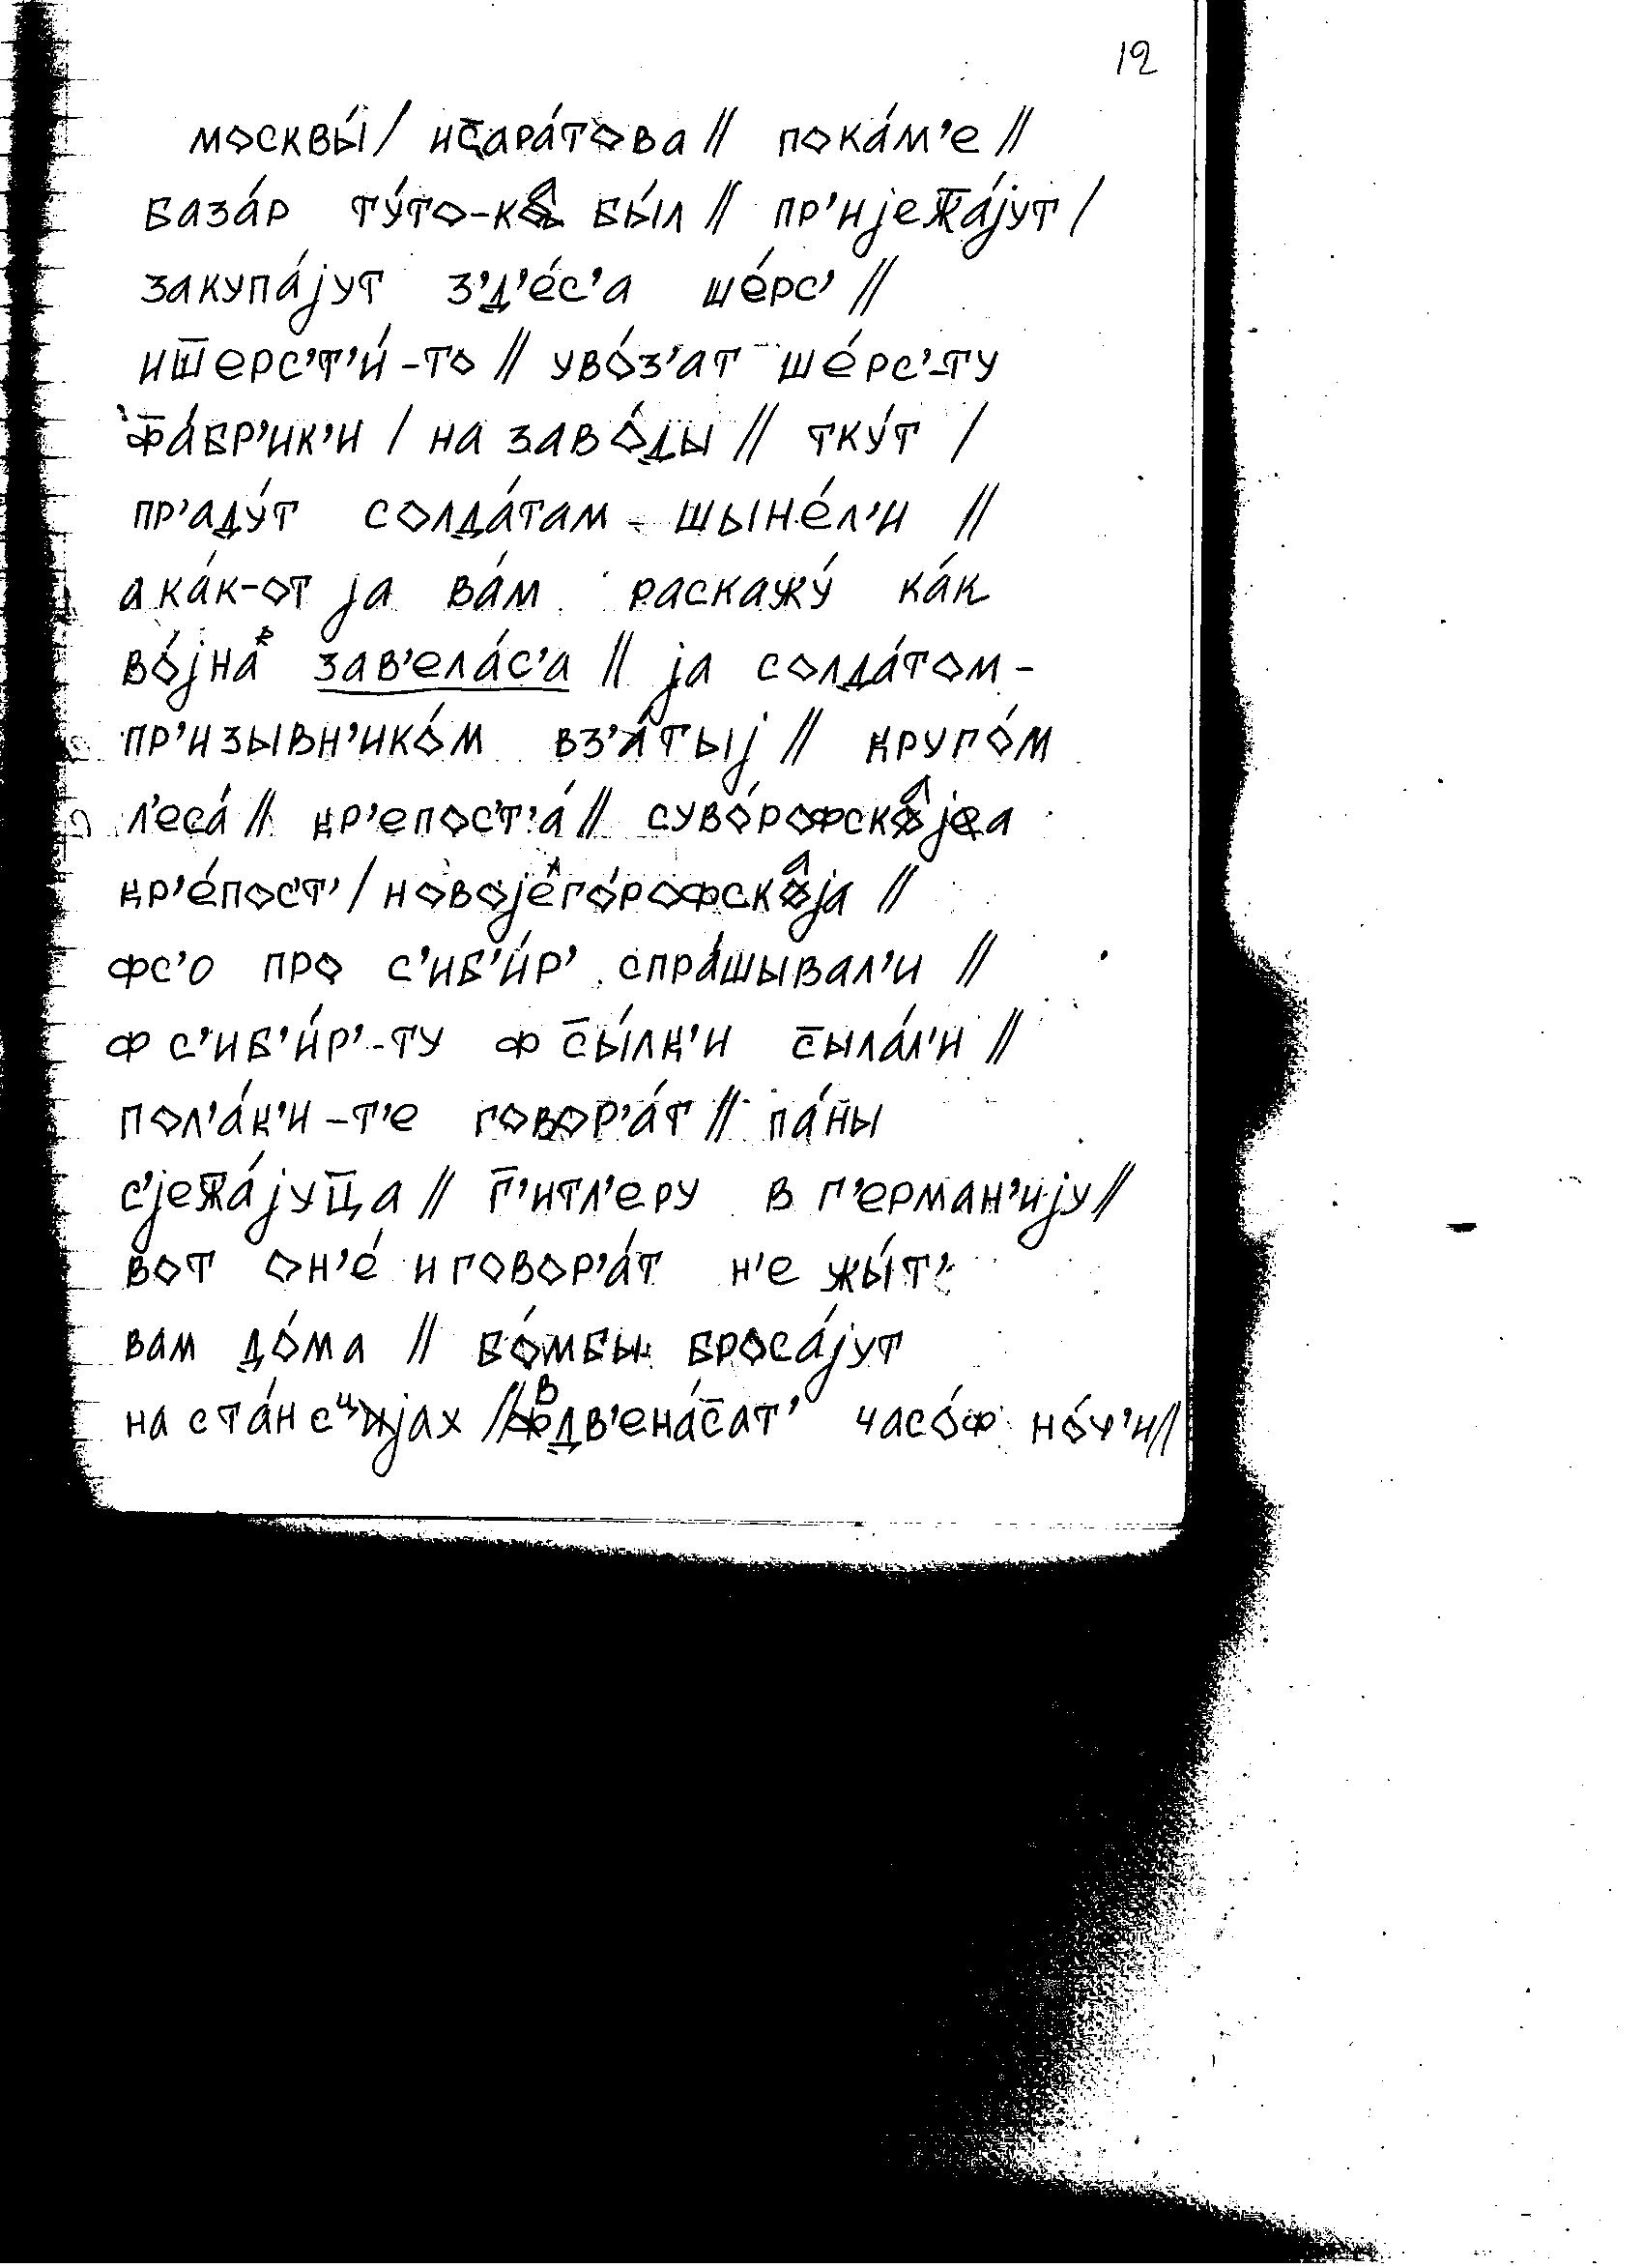 12
москвы́ / ис̅ара́това // пока́м'е //
база́р ту́то-ка бы́л // пр'ијеж̅а́јут /
закупа́јут з'д'е́с'а ше́рс' //
иш̅ерс'т'и́-то // уво́з'ат ше́рс'-ту
ф̅а́бр'ик'и / на заво́ды // тку́т /
пр'аду́т солда́там шыне́л'и //
а ка́к-от ја ва́м раскажу́ ка́к
во́јна зав'ела́с'а // ја солда́том-
пр'изывн'ико́м вз'а́тыј // круго́м
л'еса́ // кр'епост'а́ // суво́рофскаја
кр'е́пост' / новојего́рофскаја //
фс'о про с'иб'и́р' спра́шывал'и //
ф с'иб'и́р'-ту ф с̅ы́лк'и с̅ыла́л'и //
пол'а́к'и-т'е говор'а́т // па́ны
с'јеж̅а́јуц̅а // г̅'итл'еру в г'ерман'ију //
вот он'е́ и говор'а́т н'е жы́т'
вам до́ма // бо́мбы броса́јут
на ста́нсцыјах // в дв'ена́с̅ат' часо́ф но́ч'и //